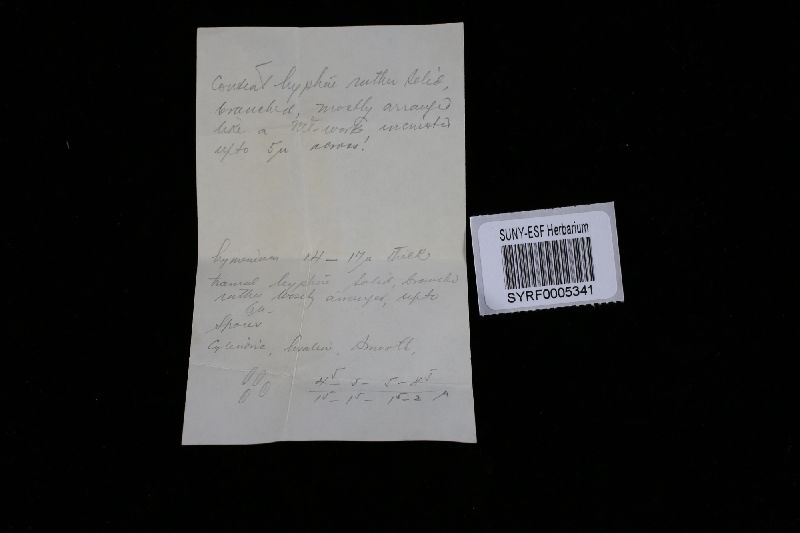 Conteal hyphae rather solid,
branched, mostly arranged
like a net-work incrusted
upto 5µ across!
hymenium 14 - 17µ thick
tramal hyphae solid, branched
rather loosely arranged, upto
6µ.
Spores
Cylindric, hyalin, smooth,
4⁵ - 5 - 5 - 8⁵
1⁵ - 1⁵ - 1⁵ - 2 µ
SUNY-ESF Herbarium
SYRF0005341